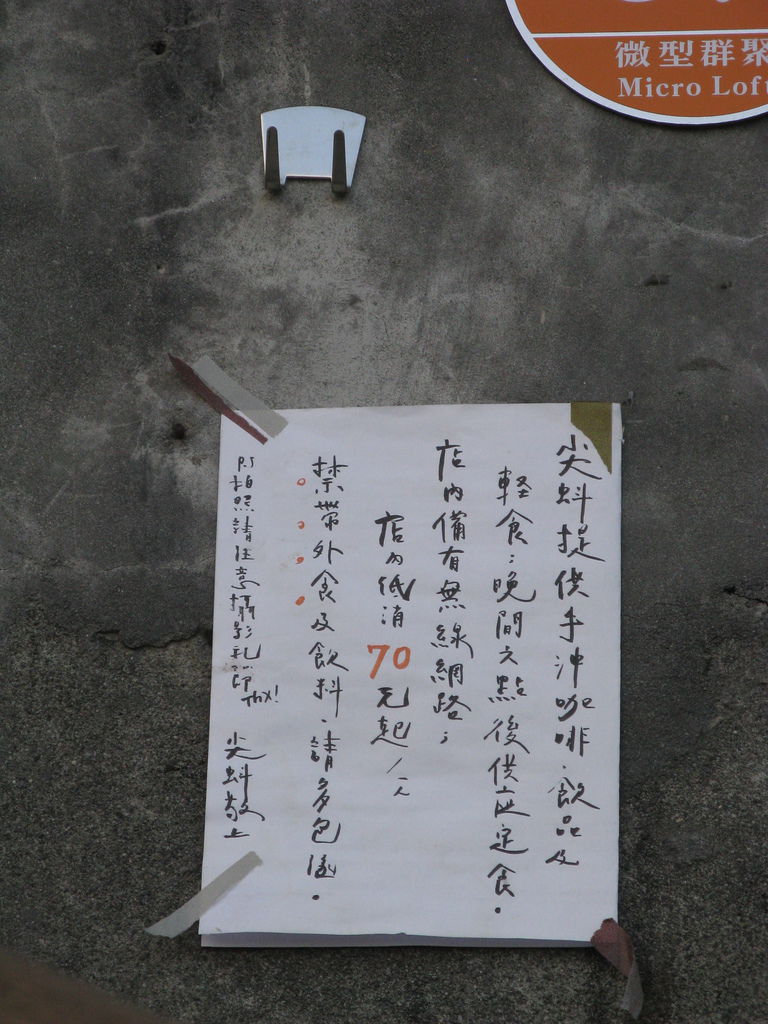 微型群聚
Micro Loft
尖蚪提供手沖咖啡、飲品及
軽食；晚間六點後供應定食。
店內備有無線網路；
店內低消70元起/人
禁帶外食及飲料、請多包涵。
拍照請注意攝影礼節 thx!
尖蚪敬上